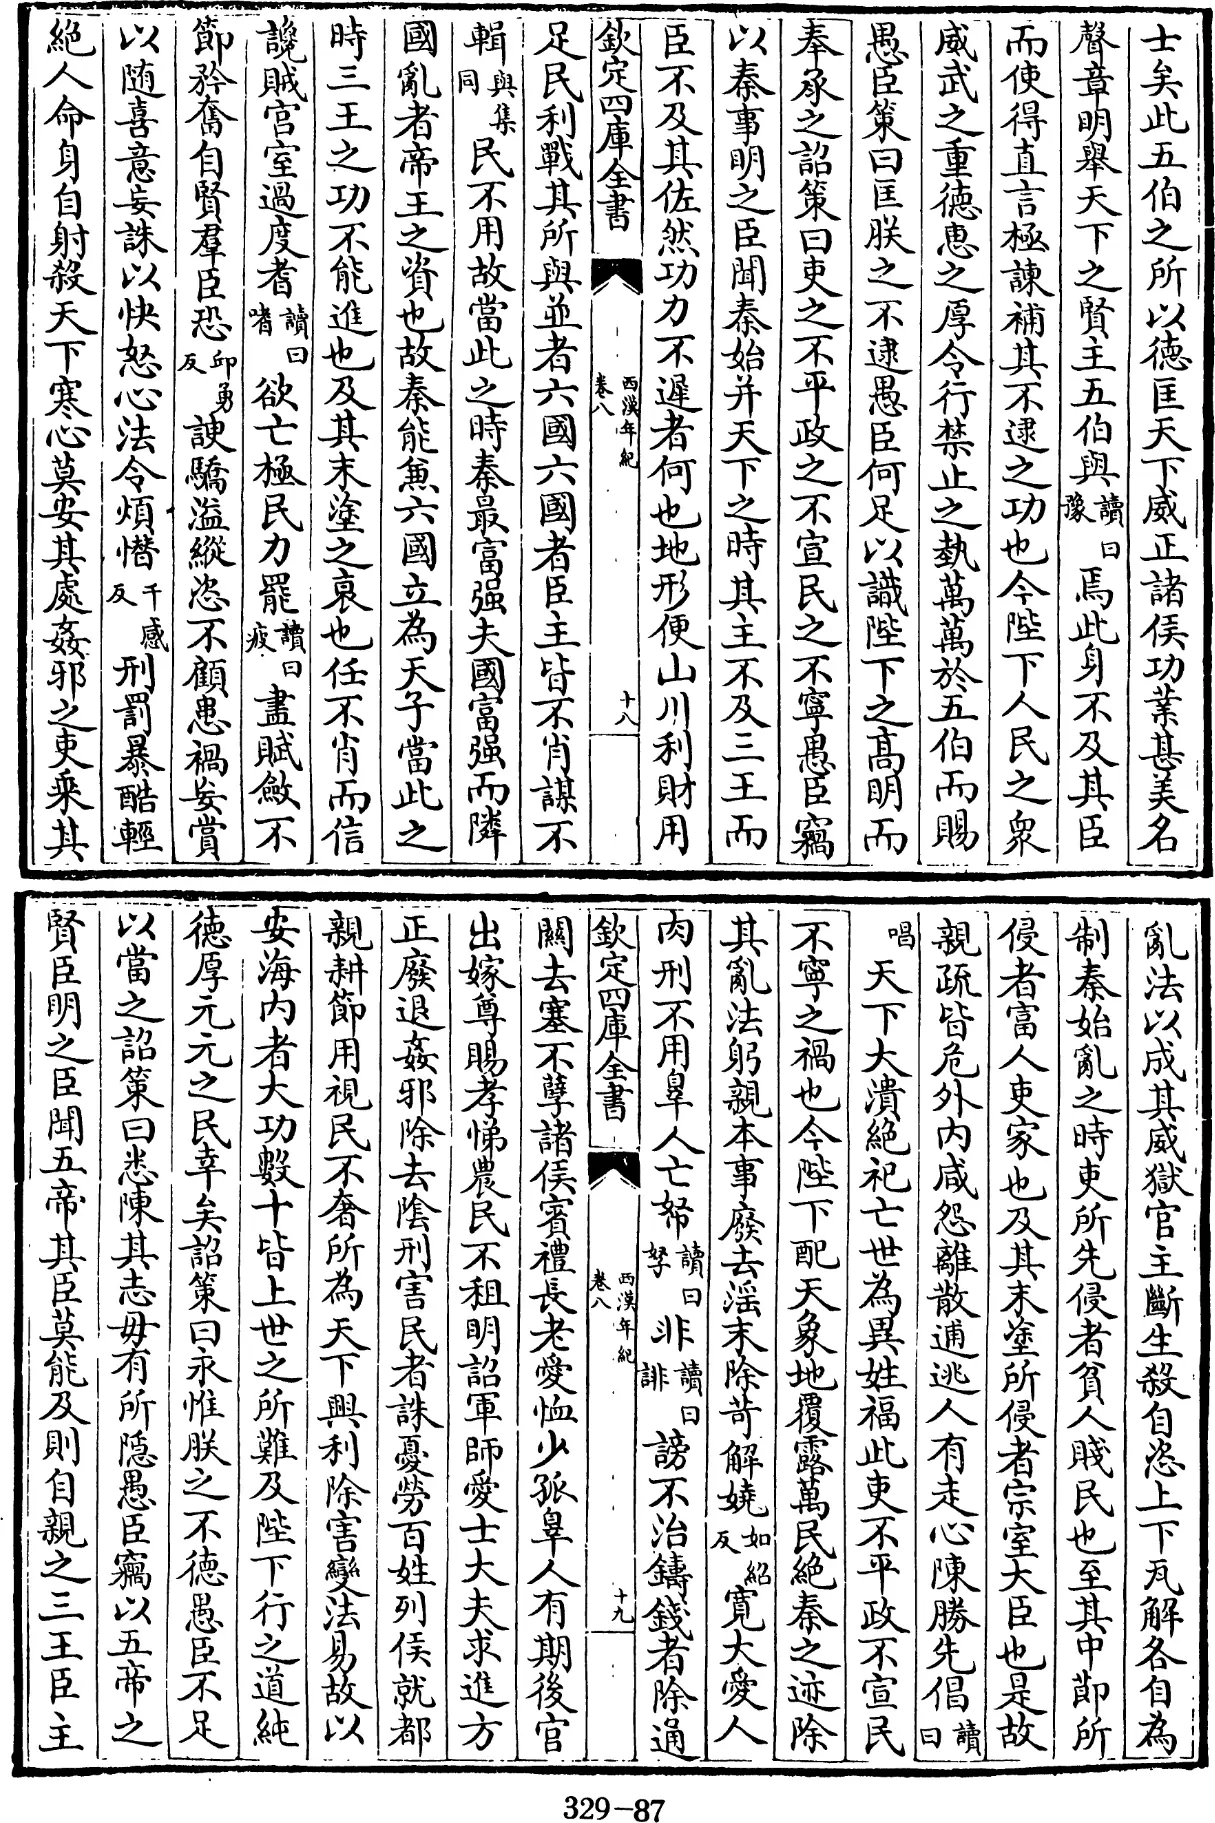 士矣此五伯之所以德匡天下威正諸侯功業甚美名
聲章明舉天下之賢主五伯與讀曰豫焉此身不及其臣
而使得直言極諫補其不逮之功也今陛下人民之衆
威武之重德惠之厚令行禁止之埶萬萬於五伯而賜
愚臣策曰匡朕之不逮愚臣何足以識陛下之髙明而
奉承之詔策曰吏之不平政之不宣民之不寧愚臣竊
以秦事明之臣聞秦始并天下之時其主不及三王而
臣不及其佐然功力不遲者何也地形便山川利財用
欽定四庫全書
西漢年紀
卷八
十八
足民利戰其所與並者六國六國者臣主皆不肖謀不
輯與集同民不用故當此之時秦最富强夫國富强而隣
國亂者帝王之資也故秦能兼六國立為天子當此之
時三王之功不能進也及其末塗之衰也任不肖而信
讒賊宫室過度耆讀曰嗜欲亡極民力罷讀曰疲盡賦斂不
節矜奮自賢羣臣恐邱勇反諛驕溢縱恣不顧患禍妄賞
以随喜意妄誅以快怒心法令煩憯千感反刑罰暴酷輕
絶人命身自射殺天下寒心莫安其處姦邪之吏乗其
亂法以成其威獄官主斷生殺自恣上下瓦解各自為
制秦始亂之時吏所先侵者貧人賤民也至其中節所
侵者富人吏家也及其末塗所侵者宗室大臣也是故
親疏皆危外内咸怨離散逋逃人有走心陳勝先倡讀曰
唱天下大潰絶祀亡世為異姓福此吏不平政不宣民
不寧之禍也今陛下配天象地覆露萬民絶秦之迹除
其亂法躬親本事廢去淫末除苛解嬈如紹反寛大愛人
肉刑不用辠人亡帑讀曰孥非讀曰誹謗不治鑄錢者除通
欽定四庫全書
西漢年紀
卷八
十九
關去塞不孽諸侯賓禮長老愛恤少孤辠人有期後宫
出嫁尊賜孝悌農民不租明詔軍師愛士大夫求進方
正廢退姦邪除去陰刑害民者誅憂勞百姓列侯就都
親耕節用視民不奢所為天下興利除害變法易故以
安海内者大功數十皆上世之所難及陛下行之道純
德厚元元之民幸矣詔策曰永惟朕之不德愚臣不足
以當之詔策曰悉陳其志毋有所隱愚臣竊以五帝之
賢臣明之臣聞五帝其臣莫能及則自親之三王臣主
329-87